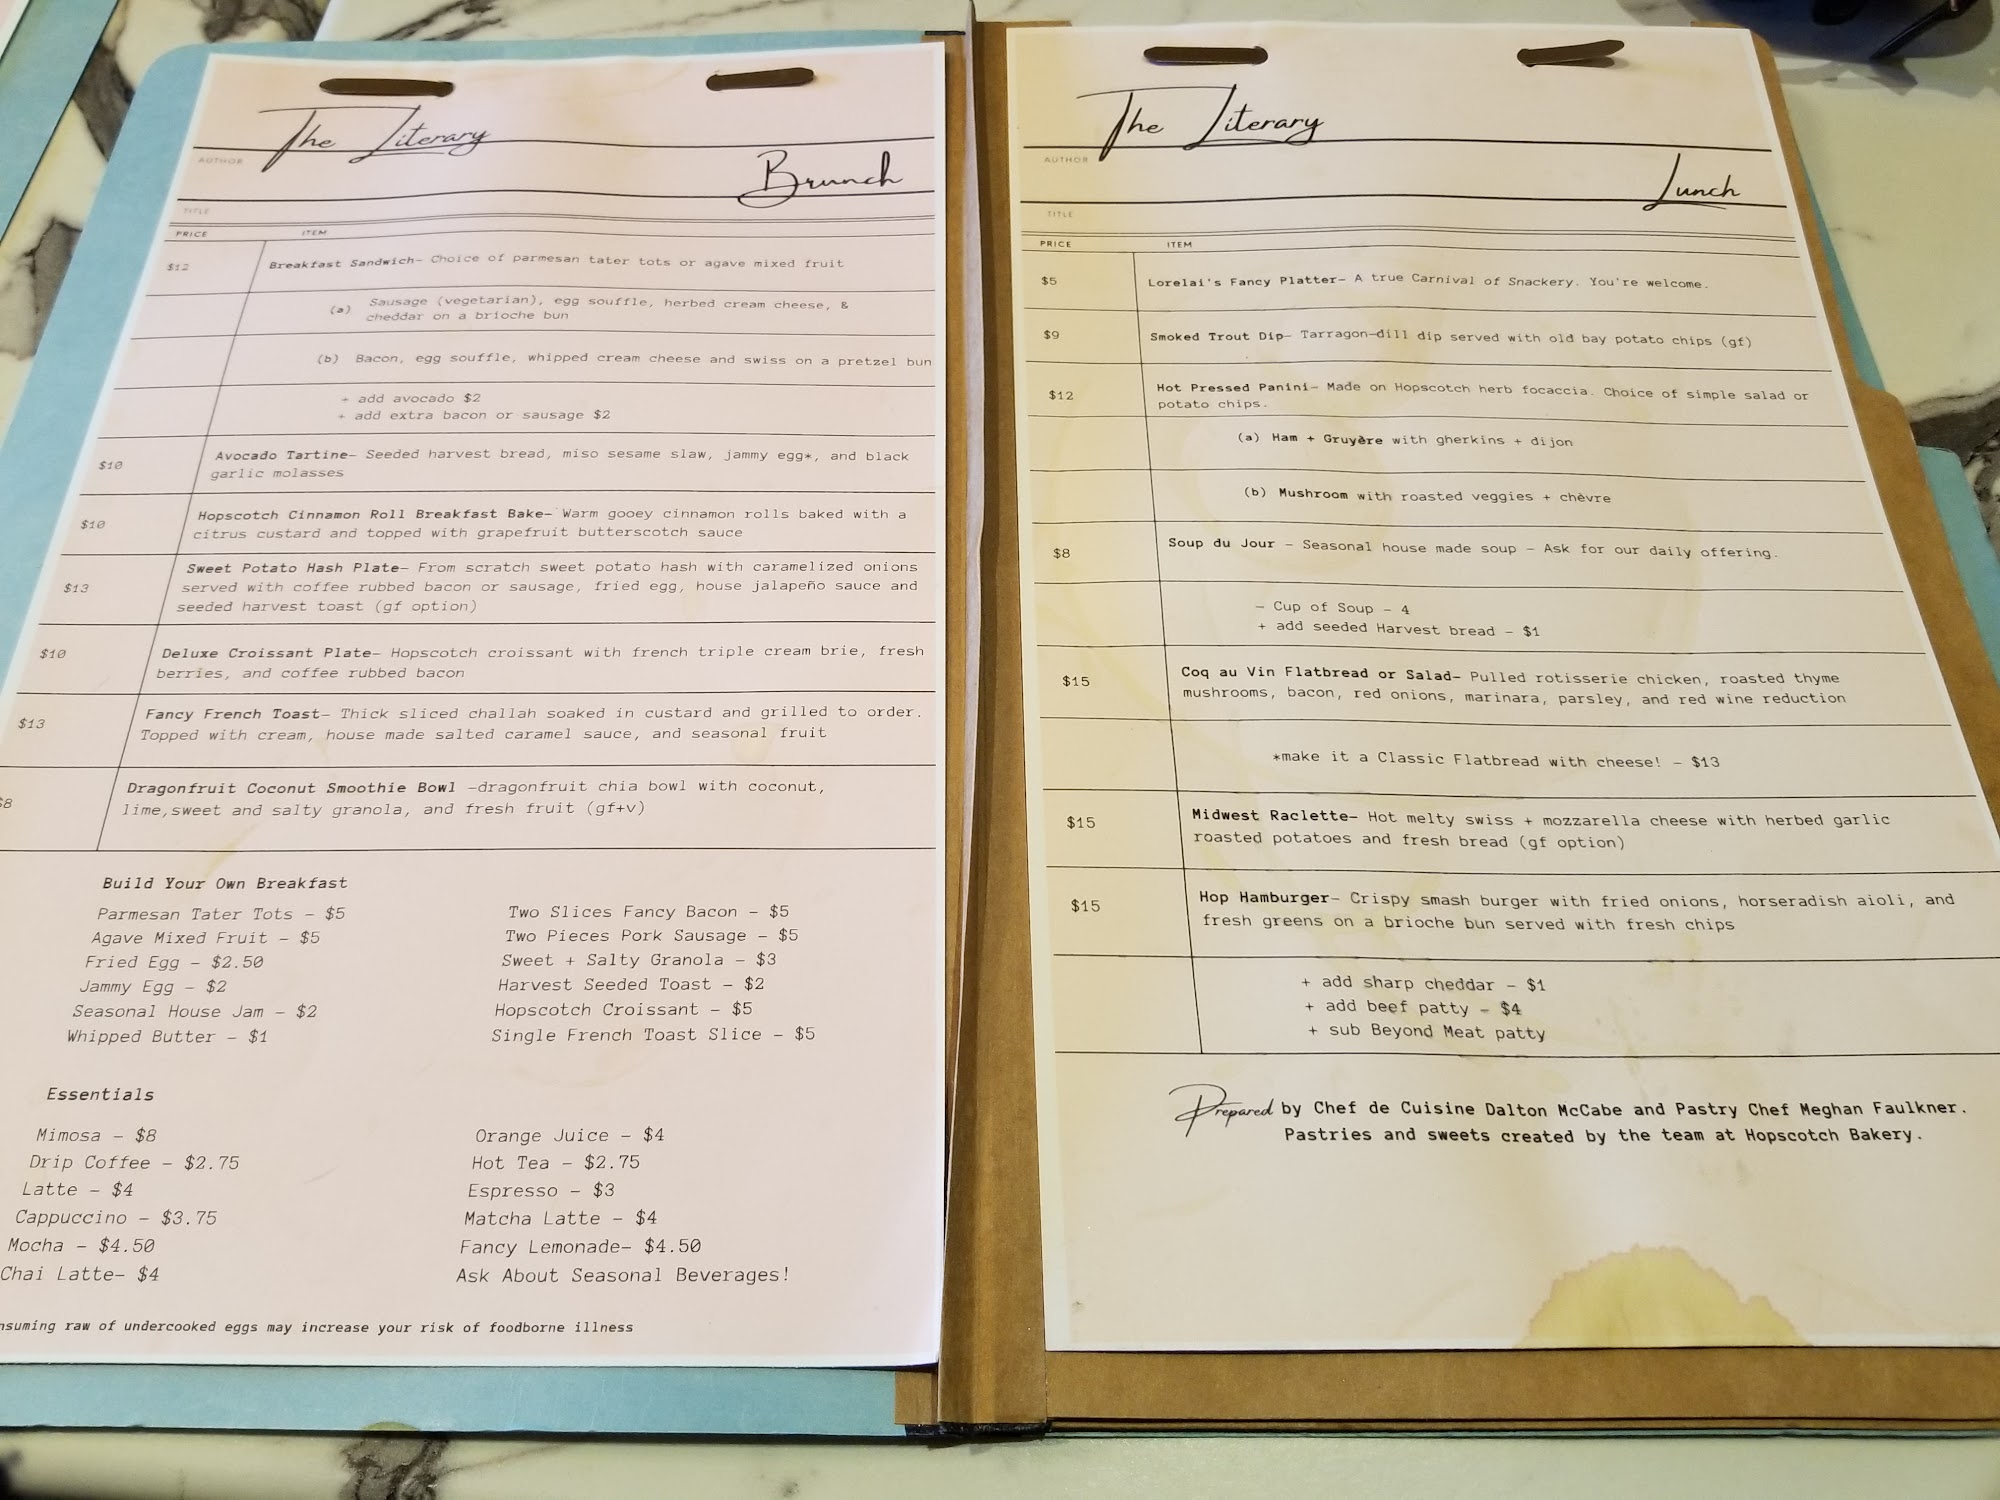 The Literary
AUTHOR
Brunch
TITLE
PRICE ITEM
$12 Breakfast Sandwich– Choice of parmesan tater tots or agave mixed fruit
(a) Sausage (vegetarian), egg souffle, herbed cream cheese, &
cheddar on a brioche bun
(b) Bacon, egg souffle, whipped cream cheese and swiss on a pretzel bun
+ add avocado $2
+ add extra bacon or sausage $2
$10 Avocado Tartine– Seeded harvest bread, miso sesame slaw, jammy egg*, and black
garlic molasses
$10 Hopscotch Cinnamon Roll Breakfast Bake– Warm gooey cinnamon rolls baked with a
citrus custard and topped with grapefruit butterscotch sauce
$13 Sweet Potato Hash Plate– From scratch sweet potato hash with caramelized onions
served with coffee rubbed bacon or sausage, fried egg, house jalapeño sauce and
seeded harvest toast (gf option)
$10 Deluxe Croissant Plate– Hopscotch croissant with french triple cream brie, fresh
berries, and coffee rubbed bacon
$13 Fancy French Toast– Thick sliced challah soaked in custard and grilled to order.
Topped with cream, house made salted caramel sauce, and seasonal fruit
$8 Dragonfruit Coconut Smoothie Bowl –dragonfruit chia bowl with coconut,
lime,sweet and salty granola, and fresh fruit (gf+v)
Build Your Own Breakfast
Parmesan Tater Tots – $5
Agave Mixed Fruit – $5
Fried Egg – $2.50
Jammy Egg – $2
Seasonal House Jam – $2
Whipped Butter – $1
Two Slices Fancy Bacon – $5
Two Pieces Pork Sausage – $5
Sweet + Salty Granola – $3
Harvest Seeded Toast – $2
Hopscotch Croissant – $5
Single French Toast Slice – $5
Essentials
Mimosa – $8
Drip Coffee – $2.75
Latte – $4
Cappuccino – $3.75
Mocha – $4.50
Chai Latte– $4
Orange Juice – $4
Hot Tea – $2.75
Espresso – $3
Matcha Latte – $4
Fancy Lemonade– $4.50
Ask About Seasonal Beverages!
nsuming raw of undercooked eggs may increase your risk of foodborne illness
The Literary
AUTHOR
Lunch
TITLE
PRICE ITEM
$5 Lorelai's Fancy Platter– A true Carnival of Snackery. You're welcome.
$9 Smoked Trout Dip– Tarragon–dill dip served with old bay potato chips (gf)
$12 Hot Pressed Panini– Made on Hopscotch herb focaccia. Choice of simple salad or
potato chips.
(a) Ham + Gruyère with gherkins + dijon
(b) Mushroom with roasted veggies + chèvre
$8 Soup du Jour – Seasonal house made soup – Ask for our daily offering.
– Cup of Soup – 4
+ add seeded Harvest bread – $1
$15 Coq au Vin Flatbread or Salad– Pulled rotisserie chicken, roasted thyme
mushrooms, bacon, red onions, marinara, parsley, and red wine reduction
*make it a Classic Flatbread with cheese! – $13
$15 Midwest Raclette– Hot melty swiss + mozzarella cheese with herbed garlic
roasted potatoes and fresh bread (gf option)
$15 Hop Hamburger– Crispy smash burger with fried onions, horseradish aioli, and
fresh greens on a brioche bun served with fresh chips
+ add sharp cheddar – $1
+ add beef patty – $4
+ sub Beyond Meat patty
Prepared by Chef de Cuisine Dalton McCabe and Pastry Chef Meghan Faulkner.
Pastries and sweets created by the team at Hopscotch Bakery.